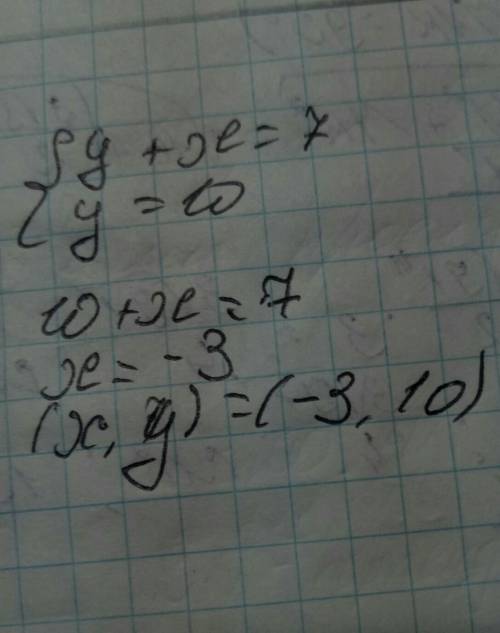 { y + x = 7
{ y = 10
10 + x = 7
x = -3
(x, y) = (-3, 10)